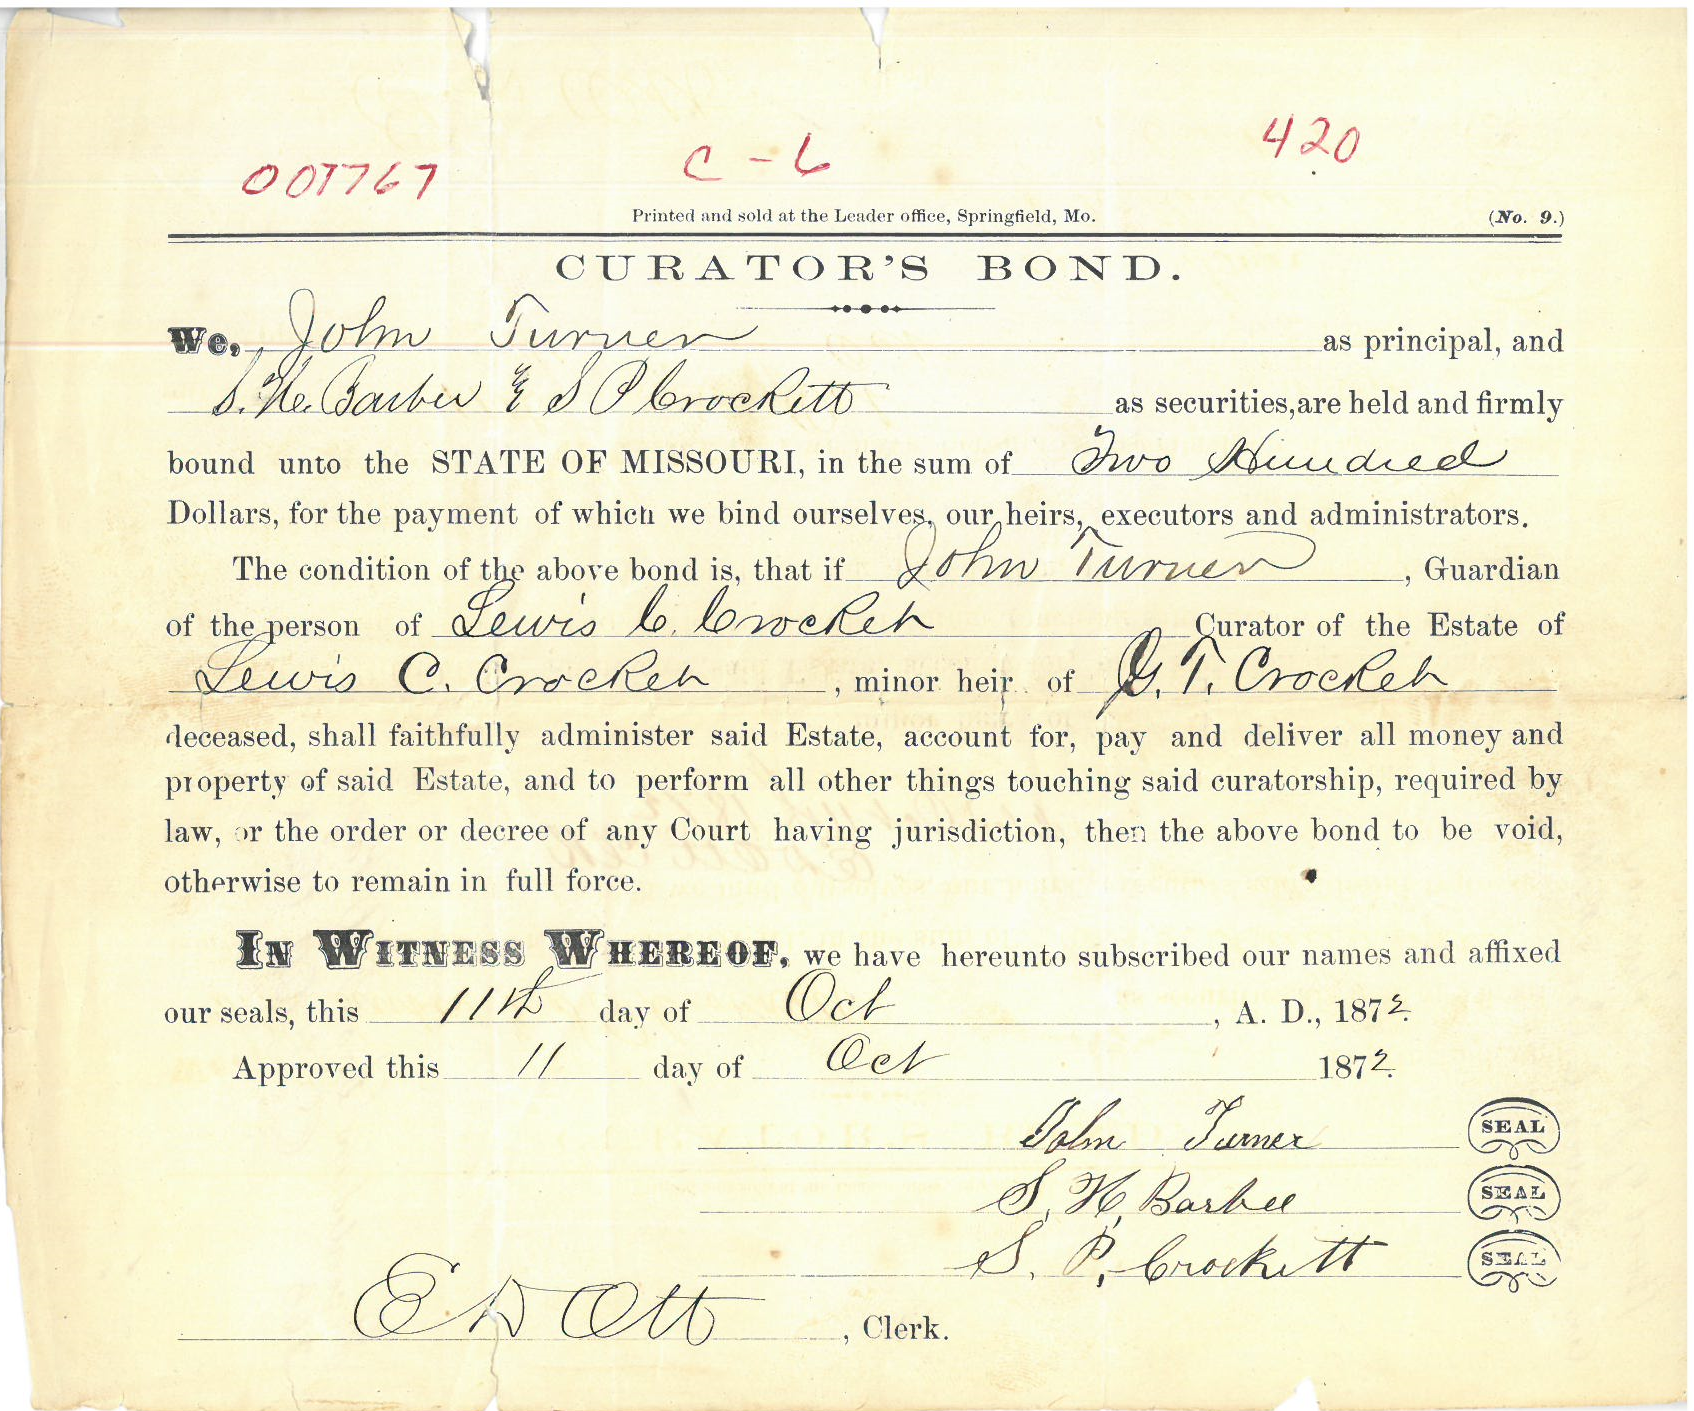 420
001767 C - 6
Printed and sold at the Leader office, Springfield, Mo. (No. 9.)
CURATOR'S BOND.
We, John Turner as principal, and
S. H. Barbee & S P Crockett as securities, are held and firmly
bound unto the STATE OF MISSOURI, in the sum of Two Hundred
Dollars, for the payment of which we bind ourselves, our heirs, executors and administrators.
The condition of the above bond is, that if John Turner, Guardian
of the person of Lewis C. Crockett Curator of the Estate of
Lewis C. Crockett, minor heir of G. T. Crockett
deceased, shall faithfully administer said Estate, account for, pay and deliver all money and
property of said Estate, and to perform all other things touching said curatorship, required by
law, or the order or decree of any Court having jurisdiction, then the above bond to be void,
otherwise to remain in full force.
IN WITNESS WHEREOF, we have hereunto subscribed our names and affixed
our seals, this 11th day of Oct, A. D., 1872.
Approved this 11 day of Oct 1872.
John Turner SEAL
S. H. Barbee SEAL
S. P. Crockett SEAL
E D Ott, Clerk.